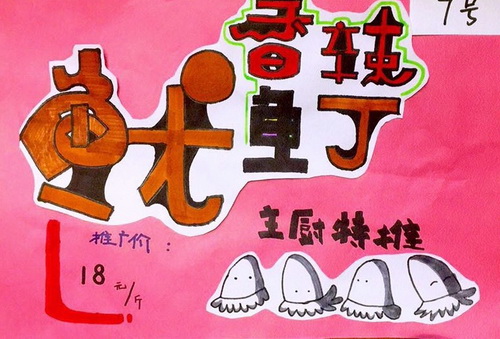 7号
香辣
鱿鱼丁
主厨特推
推广价：
18元/斤